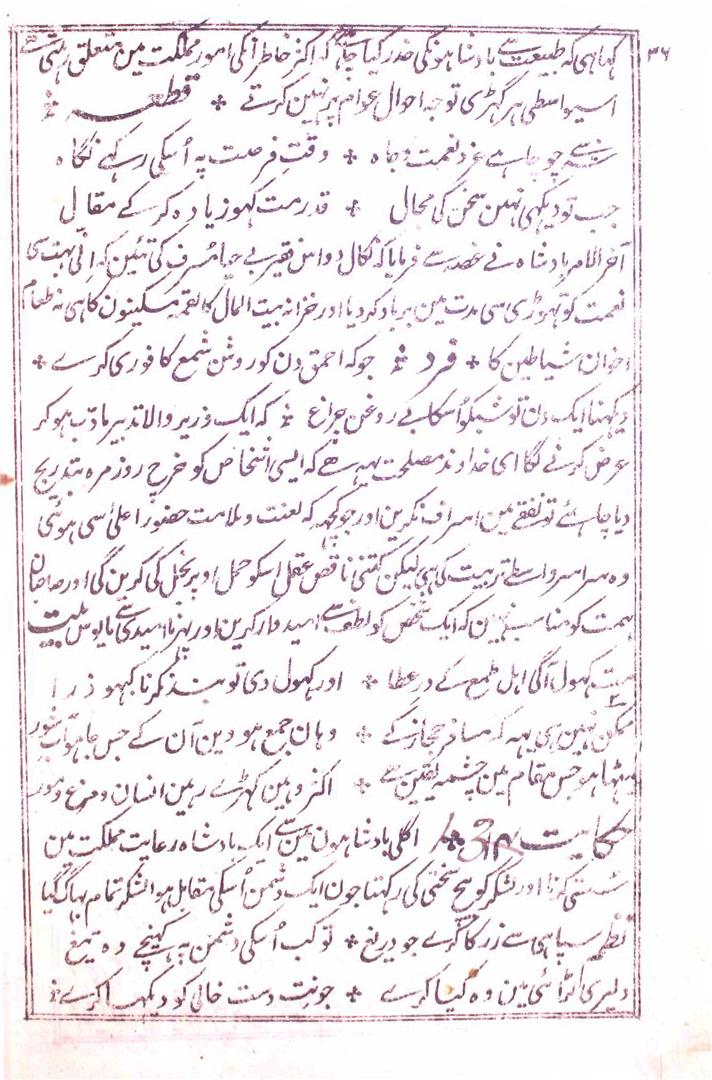 ۳۶
کہا ہی کہ طبیعت سے بادشاہونکی حذر کیا چاہئے کہ اکثر خاطر انکی امور مملکت مین متعلق رہتی ہے
اسیواسطی ہر گہڑی توجہ احوال عوام پر نہین کرتے ؞ قطعہ ؞
شہ سے جو چاہے عز و نعمت و جاہ ؞ وقتِ فرصت پہ اُسکی رکہے نگاہ
جب تو دیکہی نہین سخن کی مجال ؞ قدر مت کہو زیادہ کر کے مقال
آخر الامر بادشاہ نے غصہ سے فرمایا کہ نکال دو اس فقیر بے حیا مُسرف کی تئین کہ اِتنی بہت سی
نعمت کو تہوڑی سی مدت مین برباد کر دیا اور خزانہ بیت المال کا لقمہ مسکینون کا ہی نہ طعام
اخوان شیاطین کا ؞ فرد ؞ جو کہ احمق دن کو روشن شمع کافوری کرے ؞
دیکہنا ایک دن تو شبکو اُسکا بے روغن چراغ ؞ کہ ایک وزیر والا تدبیر مادّب ہو کر
عرض کرنے لگا ای خداوند مصلحت یہہ ہے کہ ایسی اشخاص کو خرچ روزمرہ بتدریج
دیا چاہئے تو نفقے مین اسراف نکرین اور جو کچہہ کہ لعنت و ملامت حضور اعلیٰ سی ہوئی
وہ سراسر واسطے تربیت کی ہی لیکن کتنی ناقص عقل اسکو حمل اوپر بخل کی کرین گی اور صاحبان
ہمت کو مناسب نہین کہ ایک شخص کو لطف سے امیدوار کرین اور پہر نا امیدی سے مایوس بیت
مت کہول آگی اہل طمع کے در عطا ؞ اور کہول دی تو بند نکرنا کبہو ذرا
ممکن نہین ہی یہہ کہ مسافر حجاز کے ؞ وہان جمع ہووین آن کے جس جا ہو آب شور
میٹہا ہو جس مقام مین چشمہ یقین ہے ؞ اکثر وہین کہڑے رہین انسان و مرغ و مور
حکایت ؞ اگلی بادشاہون مین سے ایک بادشاہ رعایت مملکت مین
سستی کرتا اور لشکر کو بیچ سختی کی رکہتا جون ایک دشمن اُسکی مقابل ہوا لشکر تمام بہاگ گیا
نظم سپاہی سے زر کا کرے جو دریغ ؞ تو کب اُسکی دشمن پہ کہینچے وہ تیغ
دلیری لڑائی مین وہ کیا کرے ؞ جو نت دست خالی کو دیکہا کرے ؞